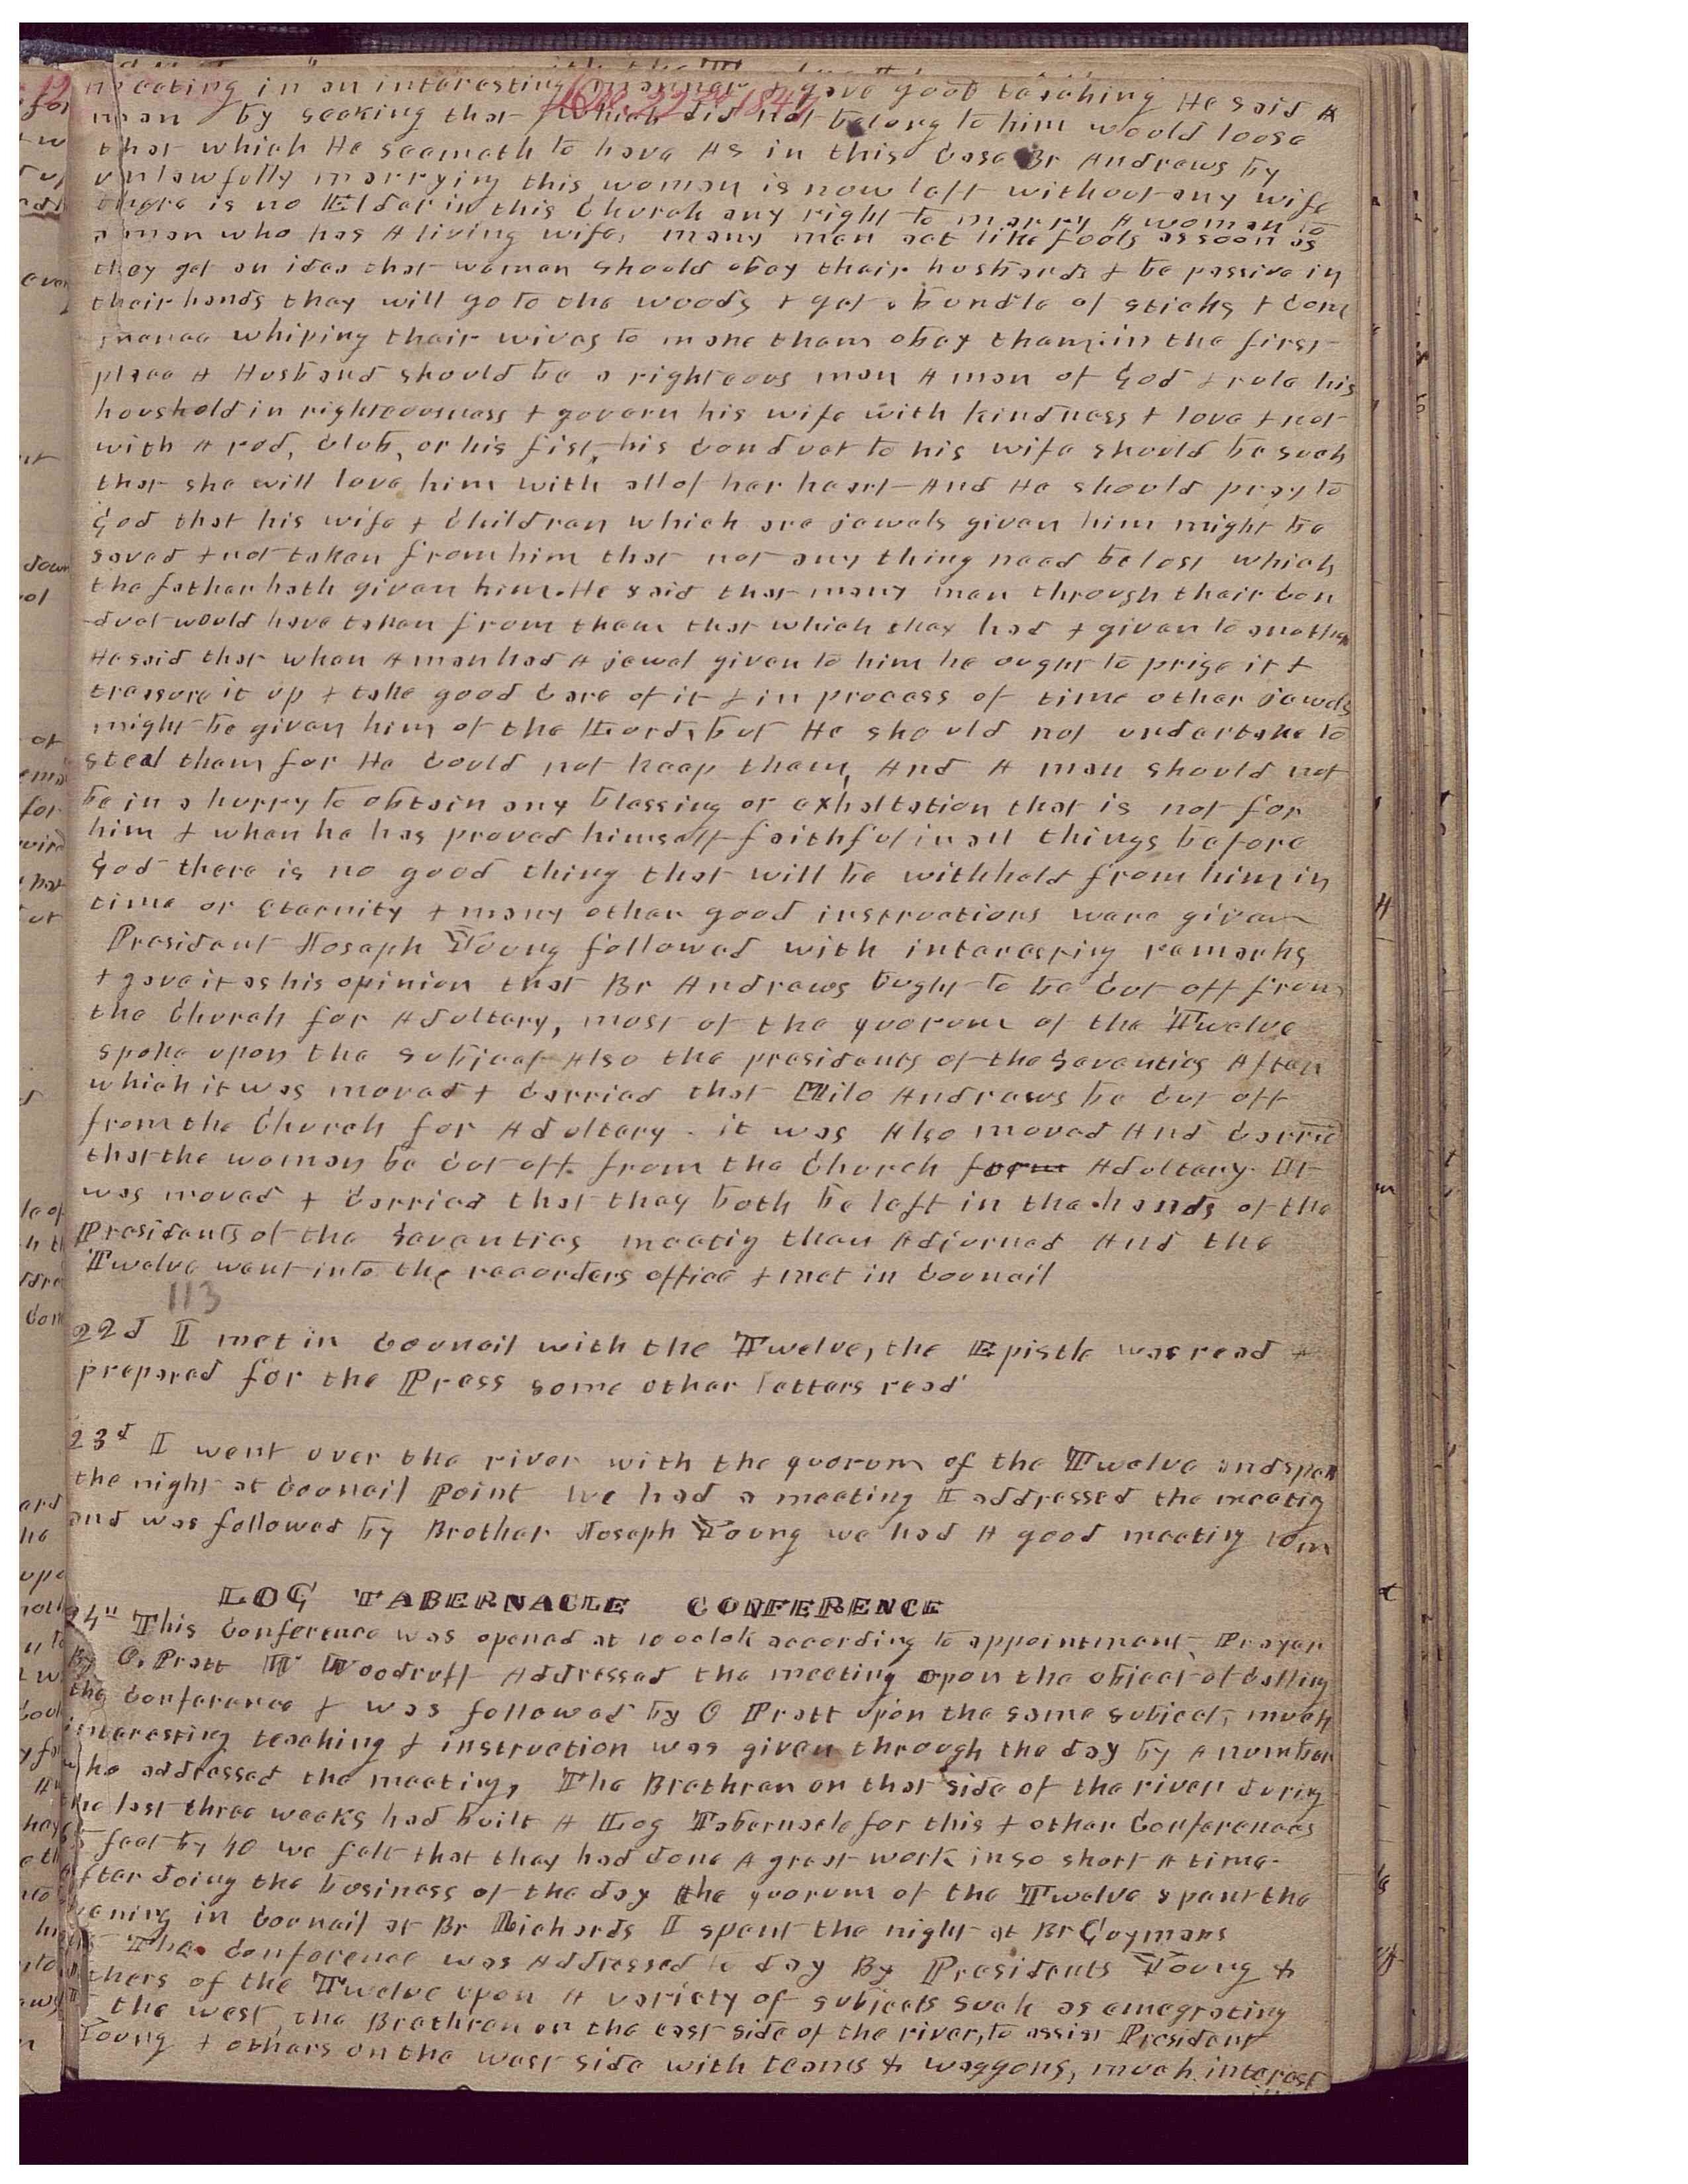 meeting in an interesting manner & gave good teaching He said A
Dec. 22nd 1847
man by seeking that which did not belong to him would loose
that which He seemeth to have As in this case Br Andrews by
unlawfully marrying this woman is now left without any wife
there is no Elder in this Church any right to marry A woman to
a man who has A living wife, many men act like fools as soon as
they get an idea that women should obey their husbands & be passive in
their hands they will go to the woods & get a bundle of sticks & com
menee whiping their wives to make them obey them. in the first
place A Husband should be a righteous man A man of God & rule his
houshold in righteousness & govern his wife with kindness & love & not
with A rod, club, or his fist, his conduct to his wife should be such
that she will love him with all of her heart And He should pray to
God that his wife & Children which are jewels given him might be
saved & not taken from him that not any thing need be lost which
the father hath given him. He said that many men through their con
duct would have taken from them that which they had & given to another
He said that when A man had A jewel given to him he ought to prize it &
treasure it up & take good care of it & in process of time other jewels
might be given him of the Lord, but He should not undertake to
steal them for He could not keep them, And A man should not
be in a hurry to obtain any blessing or exhaltation that is not for
him & when he has proved himself faithful in all things before
God there is no good thing that will be withheld from him in
time or eternity & many other good instructions were given
President Joseph Young followed with interesting remarks
& gave it as his opinion that Br Andrews ought to be cut off from
the Church for Adultery, most of the quorum of the Twelve
spoke upon the subject Also the presidents of the Seventies After
which it was moved & carried that Milo Andrews be cut off
from the Church for Adultery. it was Also moved And carrie
that the woman be cut off from the Church form Adultery. It
was moved & carried that they both be left in the hands of the
Presidents of the Seventies meetig then Adjurned And the
Twelve went into the recorders office & met in council
113
22d I met in Council with the Twelve, the Epistle was read &
prepared for the Press some other letters read
23d I went over the river with the quorum of the Twelve and spent
the night at Council Point we had a meeting I addressed the meetig
and was followed by Brother Joseph Young we had A good meetig 10 m
LOG TABERNACLE CONFERENCE
24th This Conference was opened at 10 oclok according to appointment, Prayer
By O. Pratt W Woodruff Addressed the meeting upon the object of calling
the Conference & was followed by O Pratt upon the same subject, much
interesting teaching & instruction was given through the day by A number
who addressed the meeting, The Brethren on that side of the river during
the last three weeks had built A Log Tabernacle for this & other Conferences
feet by 40 we felt that they had done A great work in so short A time.
After doing the business of the day the quorum of the Twelve spent the
evening in Council at Br Richards I spent the night at Br Gaymans
The Conference was Addressed to day By Presidents Young &
others of the Twelve upon A variety of subjects such as emegrating
the west, the Brethren on the east side of the river, to assist President
Young & others on the west side with teams & waggons, much interest